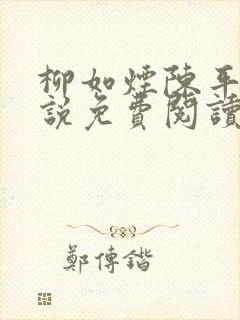 柳如煙陳平
說免費閱讀
鄭傳鍇